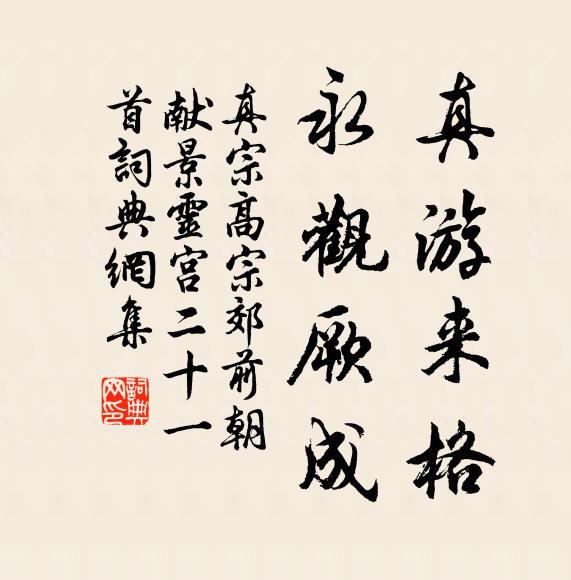 真游来格
永觀厥成
真宗高宗郊前朝
献景靈宫二十一
首詞典網集
詞典
网印